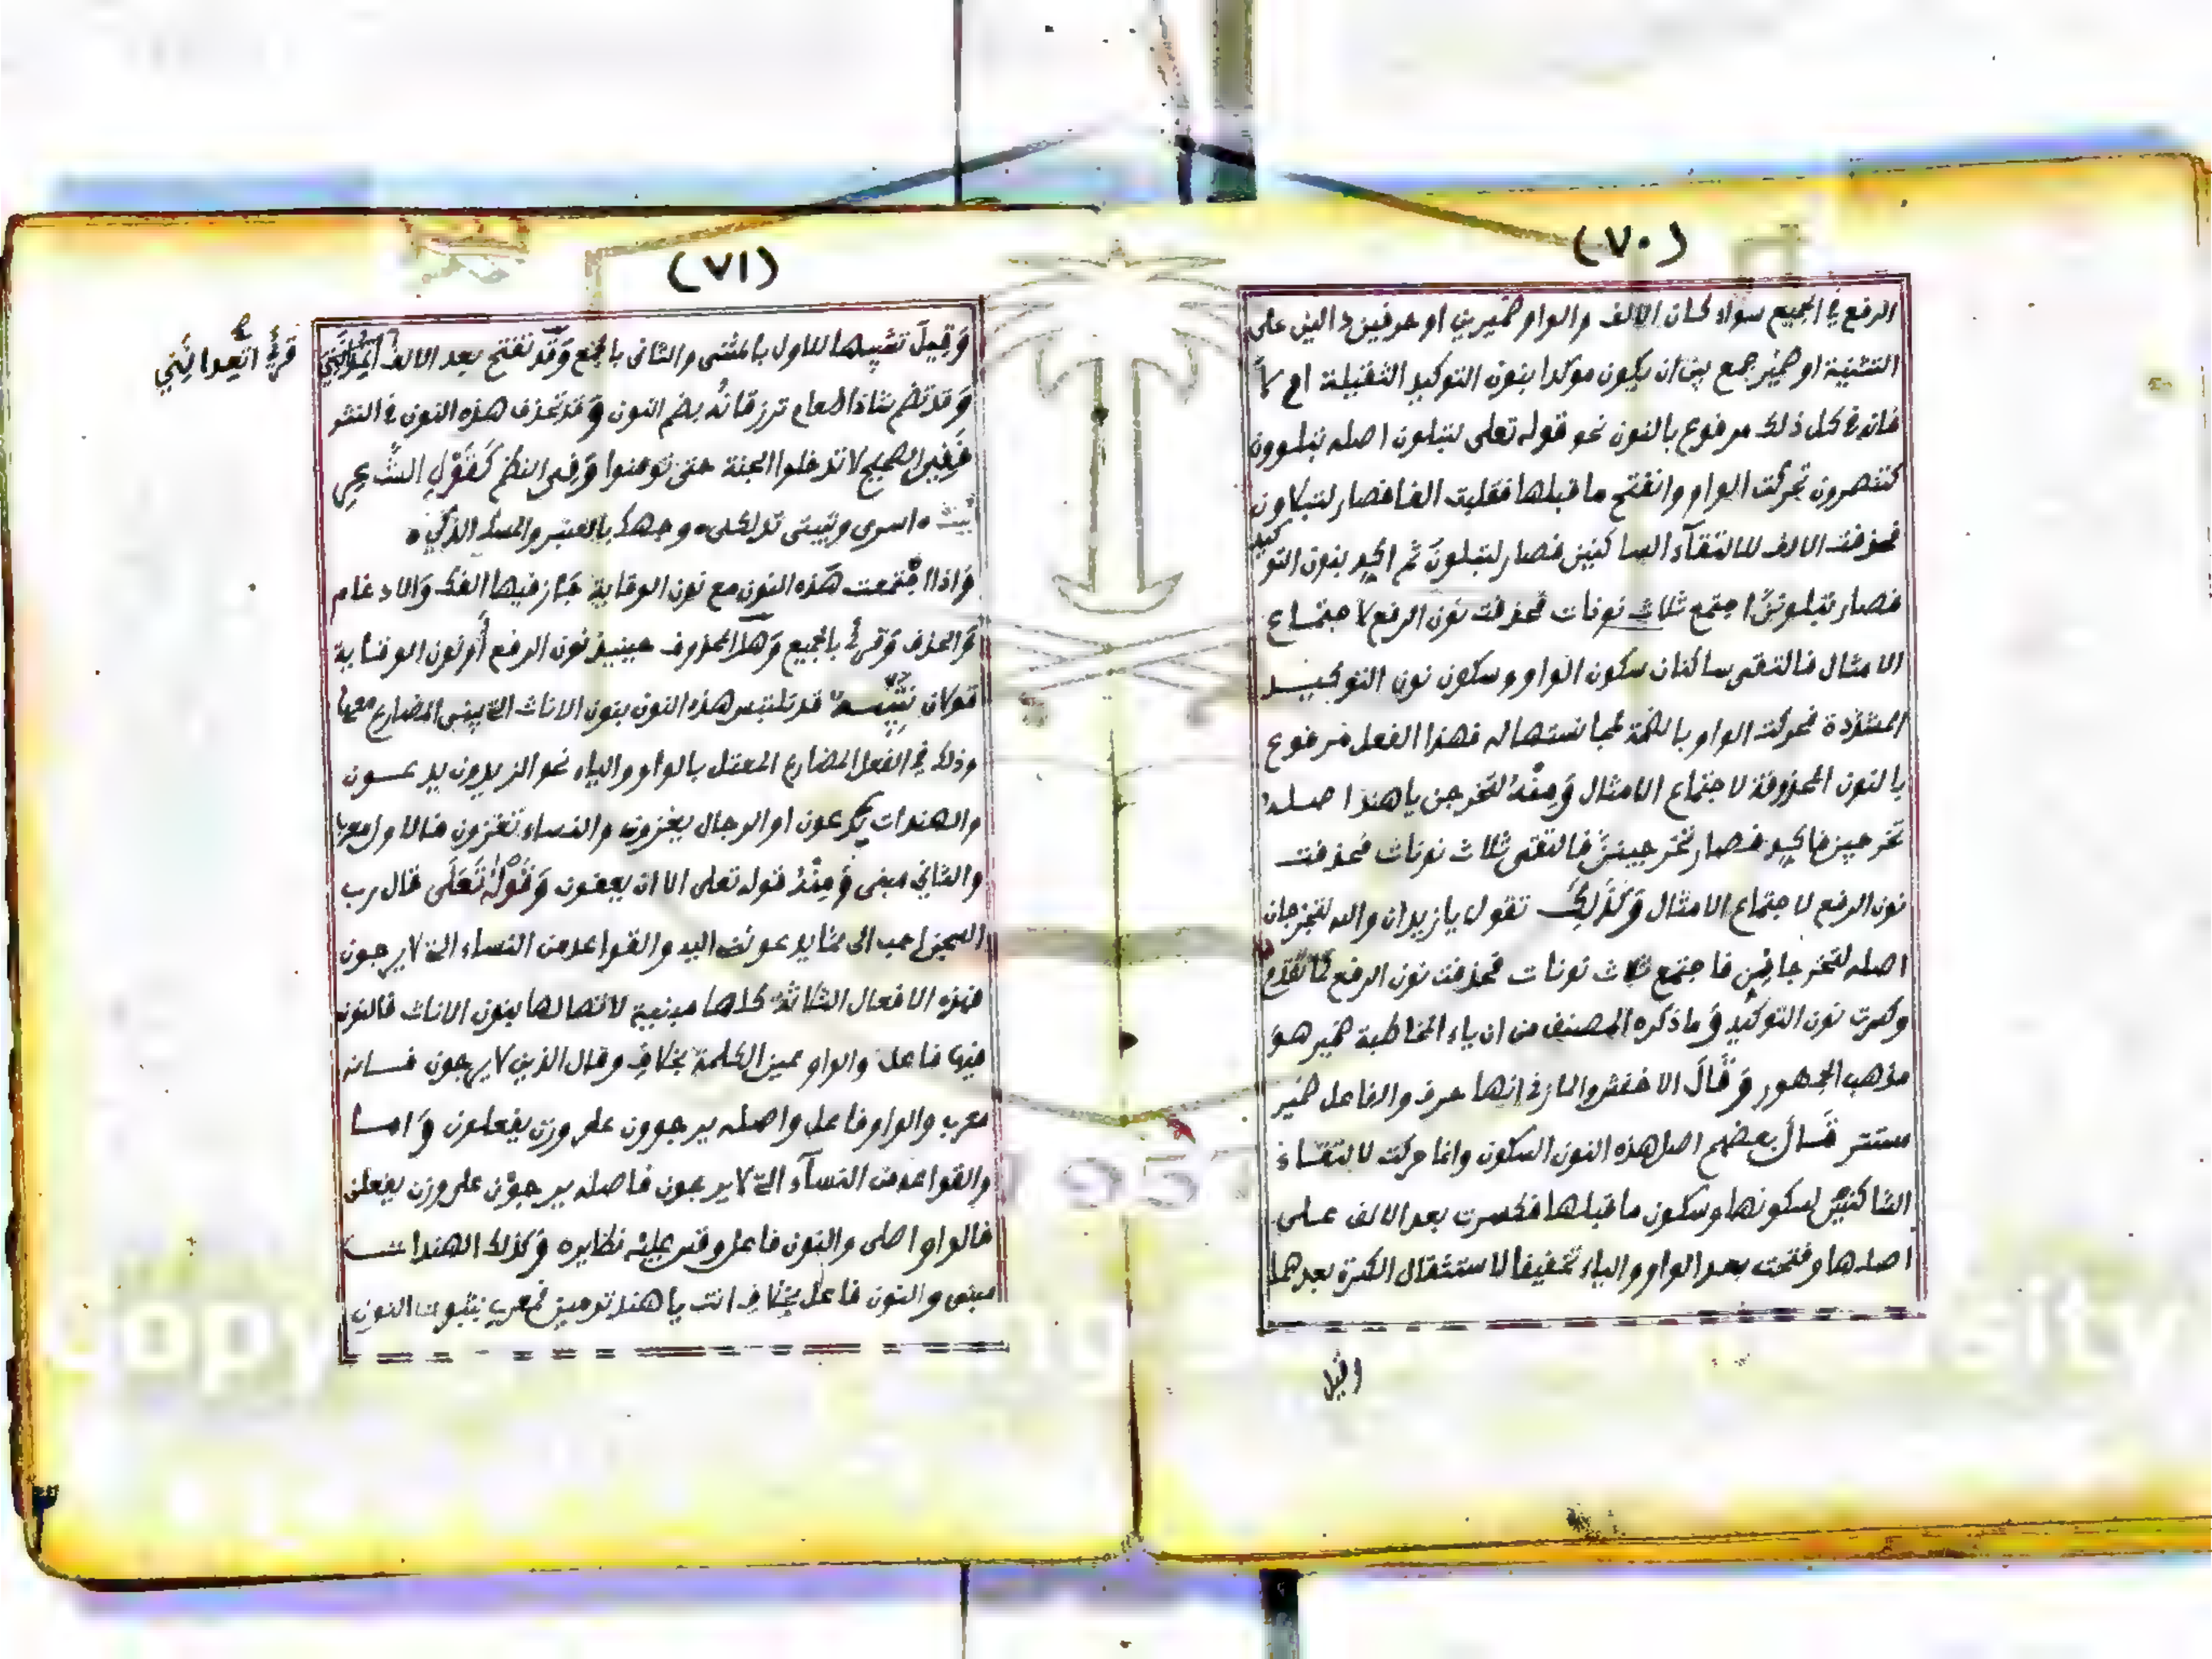 (٧٠)
الرفع في الجميع سواء كان الالف والواو ضميرين او حرفين دالين على
التثنية او ضمير جمع بين ان يكون موكدا بنون التوكيد الثقيلة ام لا
فانه في كل ذلك مرفوع بالنون نحو قوله تعلى لتبلون اصله تبلوون
كتنصرون تحركت الواو وانفتح ما قبلها فقلبت الفا فصار لتبلاون
فحذفت الالف لالتقآء الساكنين فصار لتبلونَ ثم اكد بنون التوكيد
فصار تبلوننّ اجتمع ثلاث نونات فحذفت نون الرفع لاجتماع
الامثال فالتقى ساكنان سكون الواو وسكون نون التوكيد
المشددة فحركت الواو بالضمة لمجانستها له فهذا الفعل مرفوع
بالنون المحذوفة لاجتماع الامثال وَمِنْهُ لتخرجن يا هند اصله
تخرجين فاكد فصار تخرجيننّ فالتقى ثلاث نونات فحذفت
نون الرفع لاجتماع الامثال وَكَذَلِكَ تقول يا زيدان والله لتخرجان
اصله لتخرجاننّ فاجتمع ثلاث نونات فحذفت نون الرفع لما تقدم
وكسرت نون التوكيد وَما ذكره المصنف من ان ياء المخاطبة ضمير هو
مذهب الجمهور وَقَالَ الاخفش والمازني انها حرف والفاعل ضمير
مستتر قَالَ بعضهم اصل هذه النون السكون وانما حركت لالتقاء
الساكنين لسكونها وسكون ما قبلها فكسرت بعد الالف على
اصلها وفتحت بعد الواو والياء تخفيفا لاستثقال الكسرة بعدهما
وقيل
(٧١)
وَقِيلَ تشبيها للاول بالمثنى والثانى بالجمع وَقَد تفتح بعد الالف
قرئ اتعدانَني
وَقد تضم شاذا طعام ترزقانُه بضم النون وَقد تحذف هذه النون في النثر
فَفِي الصحيح لا تدخلوا الجنة حتى تومنوا وَفِي النظم كَقَوْلِ الشاعر
بيت ٥ اسرى وتبيتى تدلكى ٥ وجهك بالعنبر والمسك الذكي ٥
وَاذا اجتمعت هَذه النون مع نون الوقاية جَاز فيها الفك وَالادغام
وَالحذف وَقرئ بالجميع وَهل المحذوف حينيذ نون الرفع أَو نون الوقاية
قولان تنبيه قد تلتبس هذه النون بنون الاناث التى يبنى المضارع معها
وذلك في الفعل المضارع المعتل بالواو والياء نحو الزيدون يدعون
والهندات يدعون او الرجال يغزون والنساء تغزون فالاول معرب
والثاني مبنى وَمِنْهُ قوله تعلى الا ان يعفون وَقَوْلُهُ تَعَلَى قال رب
السجن احب الى مما يدعونني اليه والقواعد من النساء التى لا يرجون
فهذه الافعال الثلاثة كلها مبنية لاتصالها بنون الاناث فالنون
فيها فاعل والواو عين الكلمة بخلاف وقال الذين لا يرجون فانه
معرب والواو فاعل واصله يرجوون على وزن يفعلون وَاما
والقواعد من النسآء التى لا يرجون فاصله يرجوْن على وزن يفعلن
فالواو اصلى والنون فاعل وقس عليه نظايره وَكذلك الهندات
مبنى والنون فاعل بخلاف انت يا هند ترمين فمعرب بثبوت النون